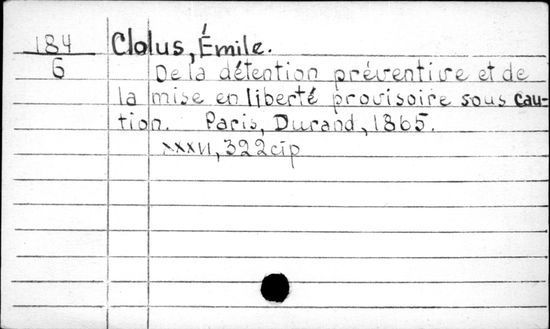 184 Clolus, Émile.
6 De la détention préventive et de
la mise en liberté provisoire sous cau-
tion. Paris, Durand, 1865.
xxxvi, 322